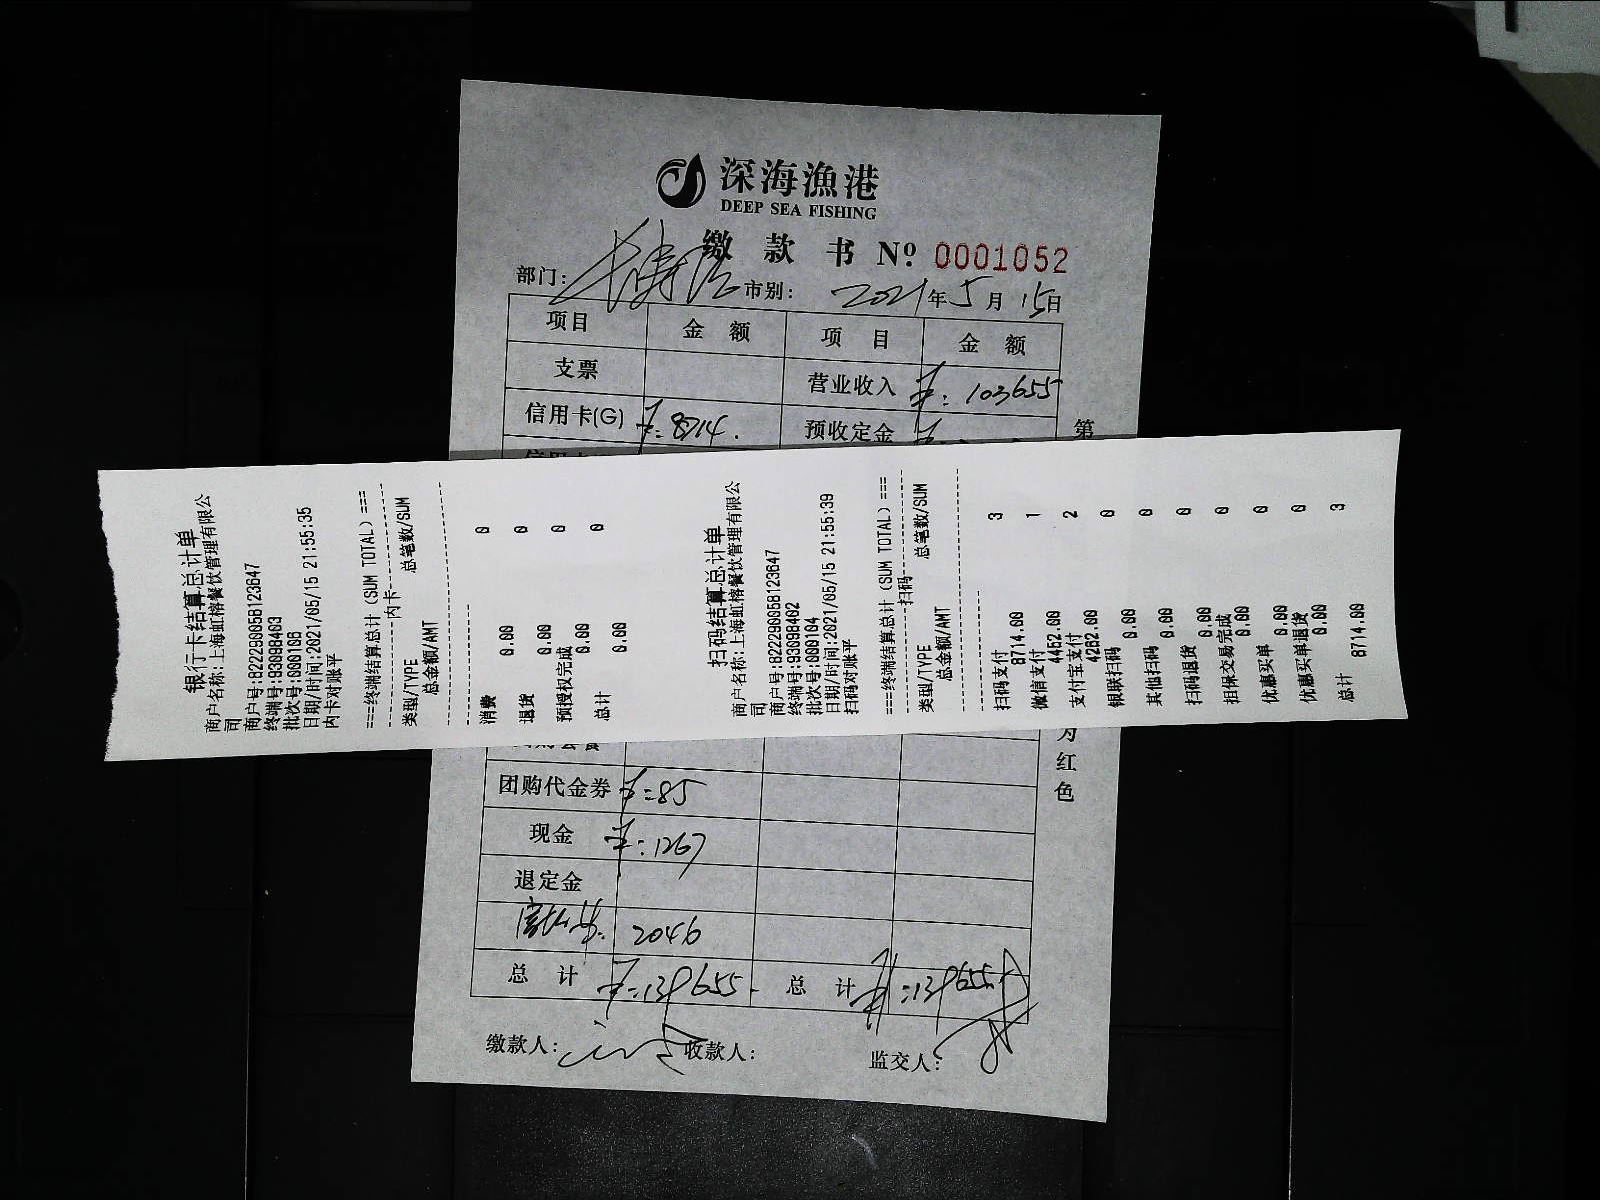 深海漁港
DEEP SEA FISHING
缴款书 №: 0001052
部门: 市别: 2021年5月15日
项目 金额 项目 金额
支票 营业收入 ¥: 103655
信用卡(G) ¥: 8714. 预收定金
第
银行卡结算总计单
商户名称:上海虹榕餐饮管理有限公
司
商户号:82229005B123647
终端号:93098403
批次号:000108
日期/时间:2021/05/15 21:55:35
内卡对账平
===终端结算总计(SUM TOTAL)===
内卡
类型/TYPE 总笔数/SUM
总金额/AMT
消费 0
0.00
退货 0
0.00
预授权完成 0
0.00
总计 0
0.00
扫码结算总计单
商户名称:上海虹榕餐饮管理有限公
司
商户号:82229005B123647
终端号:93098402
批次号:000104
日期/时间:2021/05/15 21:55:39
扫码对账平
===终端结算总计(SUM TOTAL)===
扫码
类型/TYPE 总笔数/SUM
总金额/AMT
扫码支付 3
8714.00
微信支付 1
4452.00
支付宝支付 2
4262.00
银联扫码 0
0.00
其他扫码 0
0.00
扫码退货 0
0.00
担保交易完成 0
0.00
优惠买单 0
0.00
优惠买单退货 0
0.00
总计 3
8714.00
为红色
团购代金券 ¥:85
现金 ¥:1267
退定金
2046
总计 总计
缴款人: 收款人: 监交人: